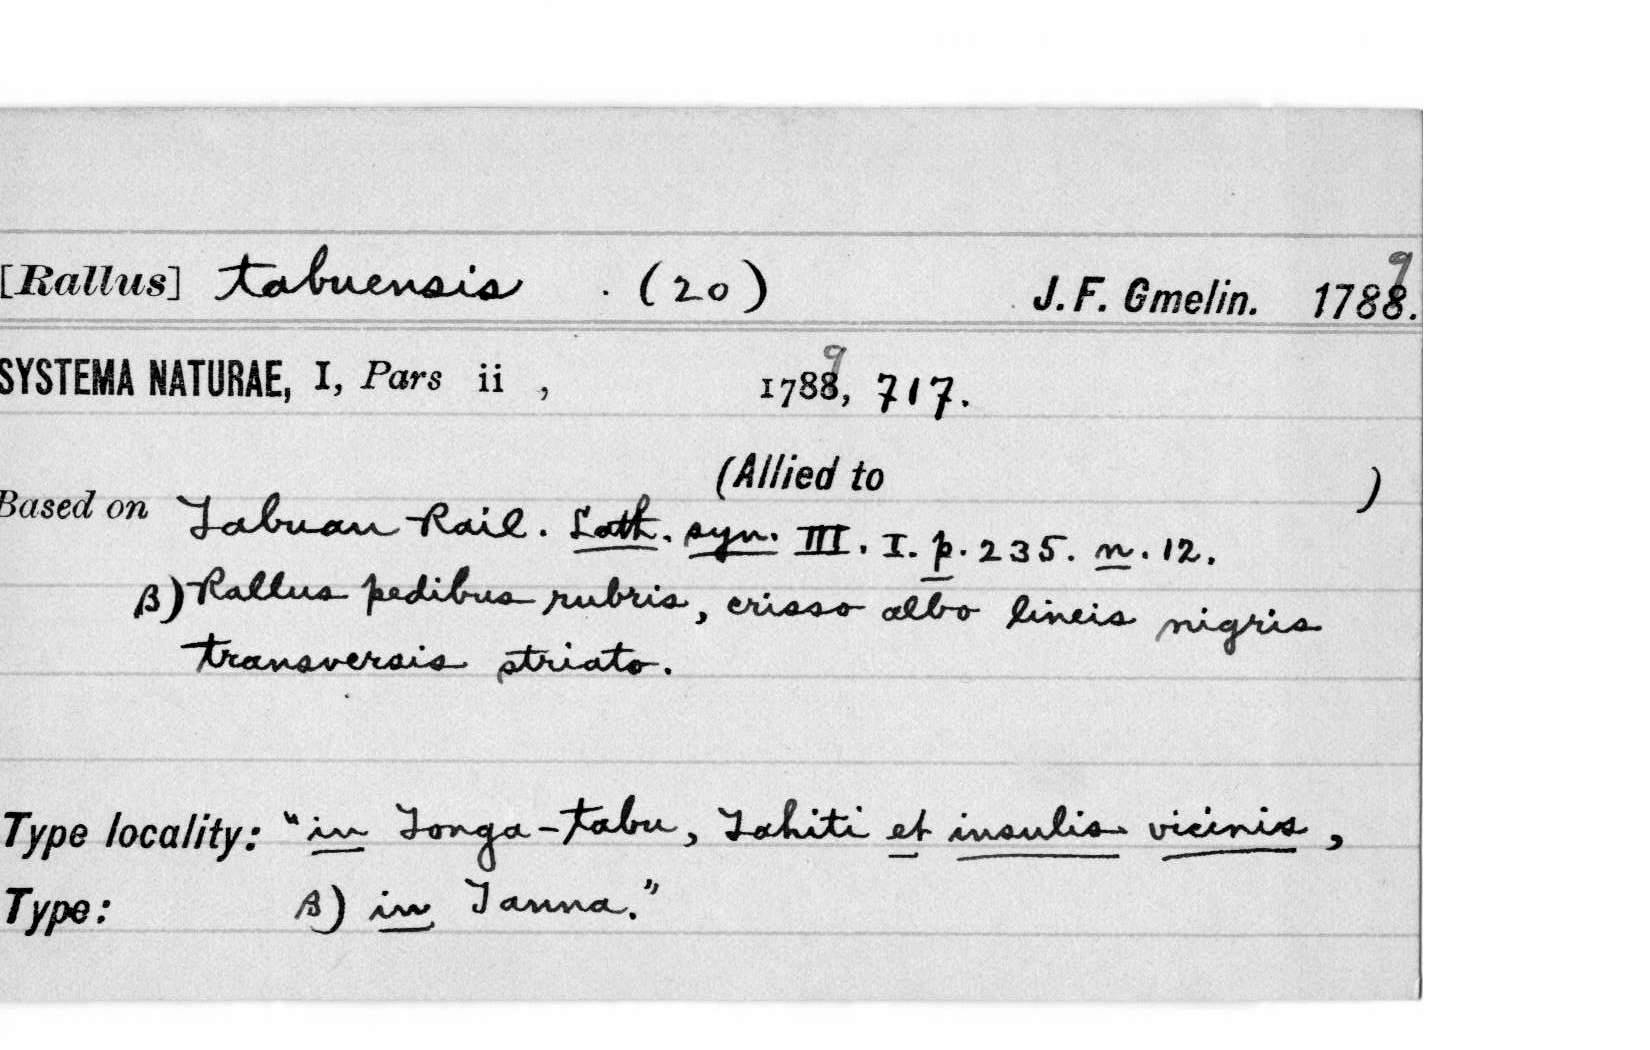 [Rallus] tabuensis . (20) J. F. Gmelin. 1788. 9
SYSTEMA NATURAE, I, Pars ii , 1788, 9 717.
(Allied to )
Based on Tabuan Rail. Lath. syn. III. I. p. 235. n. 12.
β) Rallus pedibus rubris, crisso albo lineis nigris
transversis striato.
Type locality: "in Tonga-tabu, Tahiti et insulis vicinis,
Type: β) in Tanna."